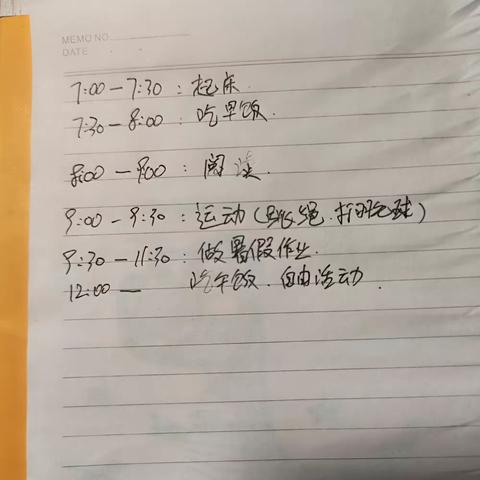 MEMO NO.
DATE
7:00—7:30：起床.
7:30—8:00：吃早饭.
8:00—9:00：阅读.
9:00—9:30：运动(跳绳.打羽毛球)
9:30—11:30：做暑假作业.
12:00— 吃午饭.自由活动.